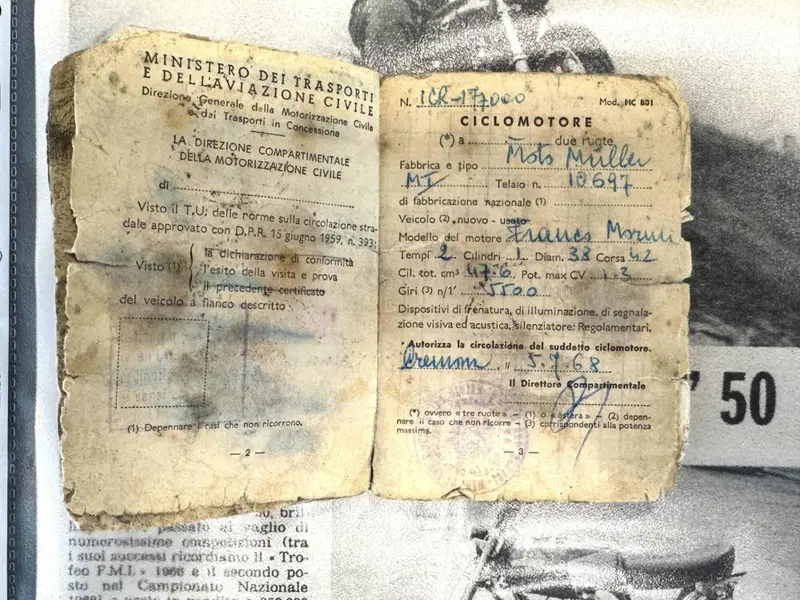 MINISTERO DEI TRASPORTI
E DELL'AVIAZIONE CIVILE
Direzione Generale della Motorizzazione Civile
e dai Trasporti in Concessione
LA DIREZIONE COMPARTIMENTALE
DELLA MOTORIZZAZIONE CIVILE
di
Visto il T.U. delle norme sulla circolazione stra-
dale approvato con D.P.R. 15 giugno 1959, n. 393;
la dichiarazione di conformità
Visto (1) l'esito della visita e prova
il precedente certificato
del veicolo a fianco descritto
(1) Depennare i casi che non ricorrono.
— 2 —
N. 1CR-177000 Mod. MC 801
CICLOMOTORE
(*) a due ruote
Fabbrica e tipo Moto Müller
MT Telaio n. 10697
di fabbricazione nazionale (1)
Veicolo (2) nuovo - usato
Modello del motore Franco Morini
Tempi 2 Cilindri 1 Diam. 38 Corsa 42
Cil. tot. cm³ 47.6 Pot. max CV 1.3
Giri (3) n/1' 5500
Dispositivi di frenatura, di illuminazione, di segnala-
zione visiva ed acustica, silenziatore: Regolamentari.
Autorizza la circolazione del suddetto ciclomotore.
Cremona, lì 5.7.68
Il Direttore Compartimentale
(*) ovvero «tre ruote» – (1) o «estera» – (2) depen-
nare il caso che non ricorre – (3) corrispondenti alla potenza
massima.
— 3 —
50
passato al vaglio di
numerosissime competizioni (tra
i suoi successi ricordiamo il « Tro-
feo F.M.I. » 1966 e il secondo po-
sto nel Campionato Nazionale